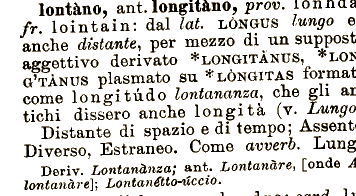 lontàno, ant. longitàno, prov. lonhda
fr. lointain: dal lat. LÓNGUS lungo e
anche distante, per mezzo di un suppost
aggettivo derivato *LONGITÀNUS, *LON
G'TÀNUS plasmato su *LÒNGITAS format
come longitúdo lontananza, che gli an
tichi dissero anche longità (v. Lungo
Distante di spazio e di tempo; Assent
Diverso, Estraneo. Come avverb. Lung
Deriv. Lontanànza; ant. Lontanàre, [onde A
lontanàre]; Lontanétto-úccio.